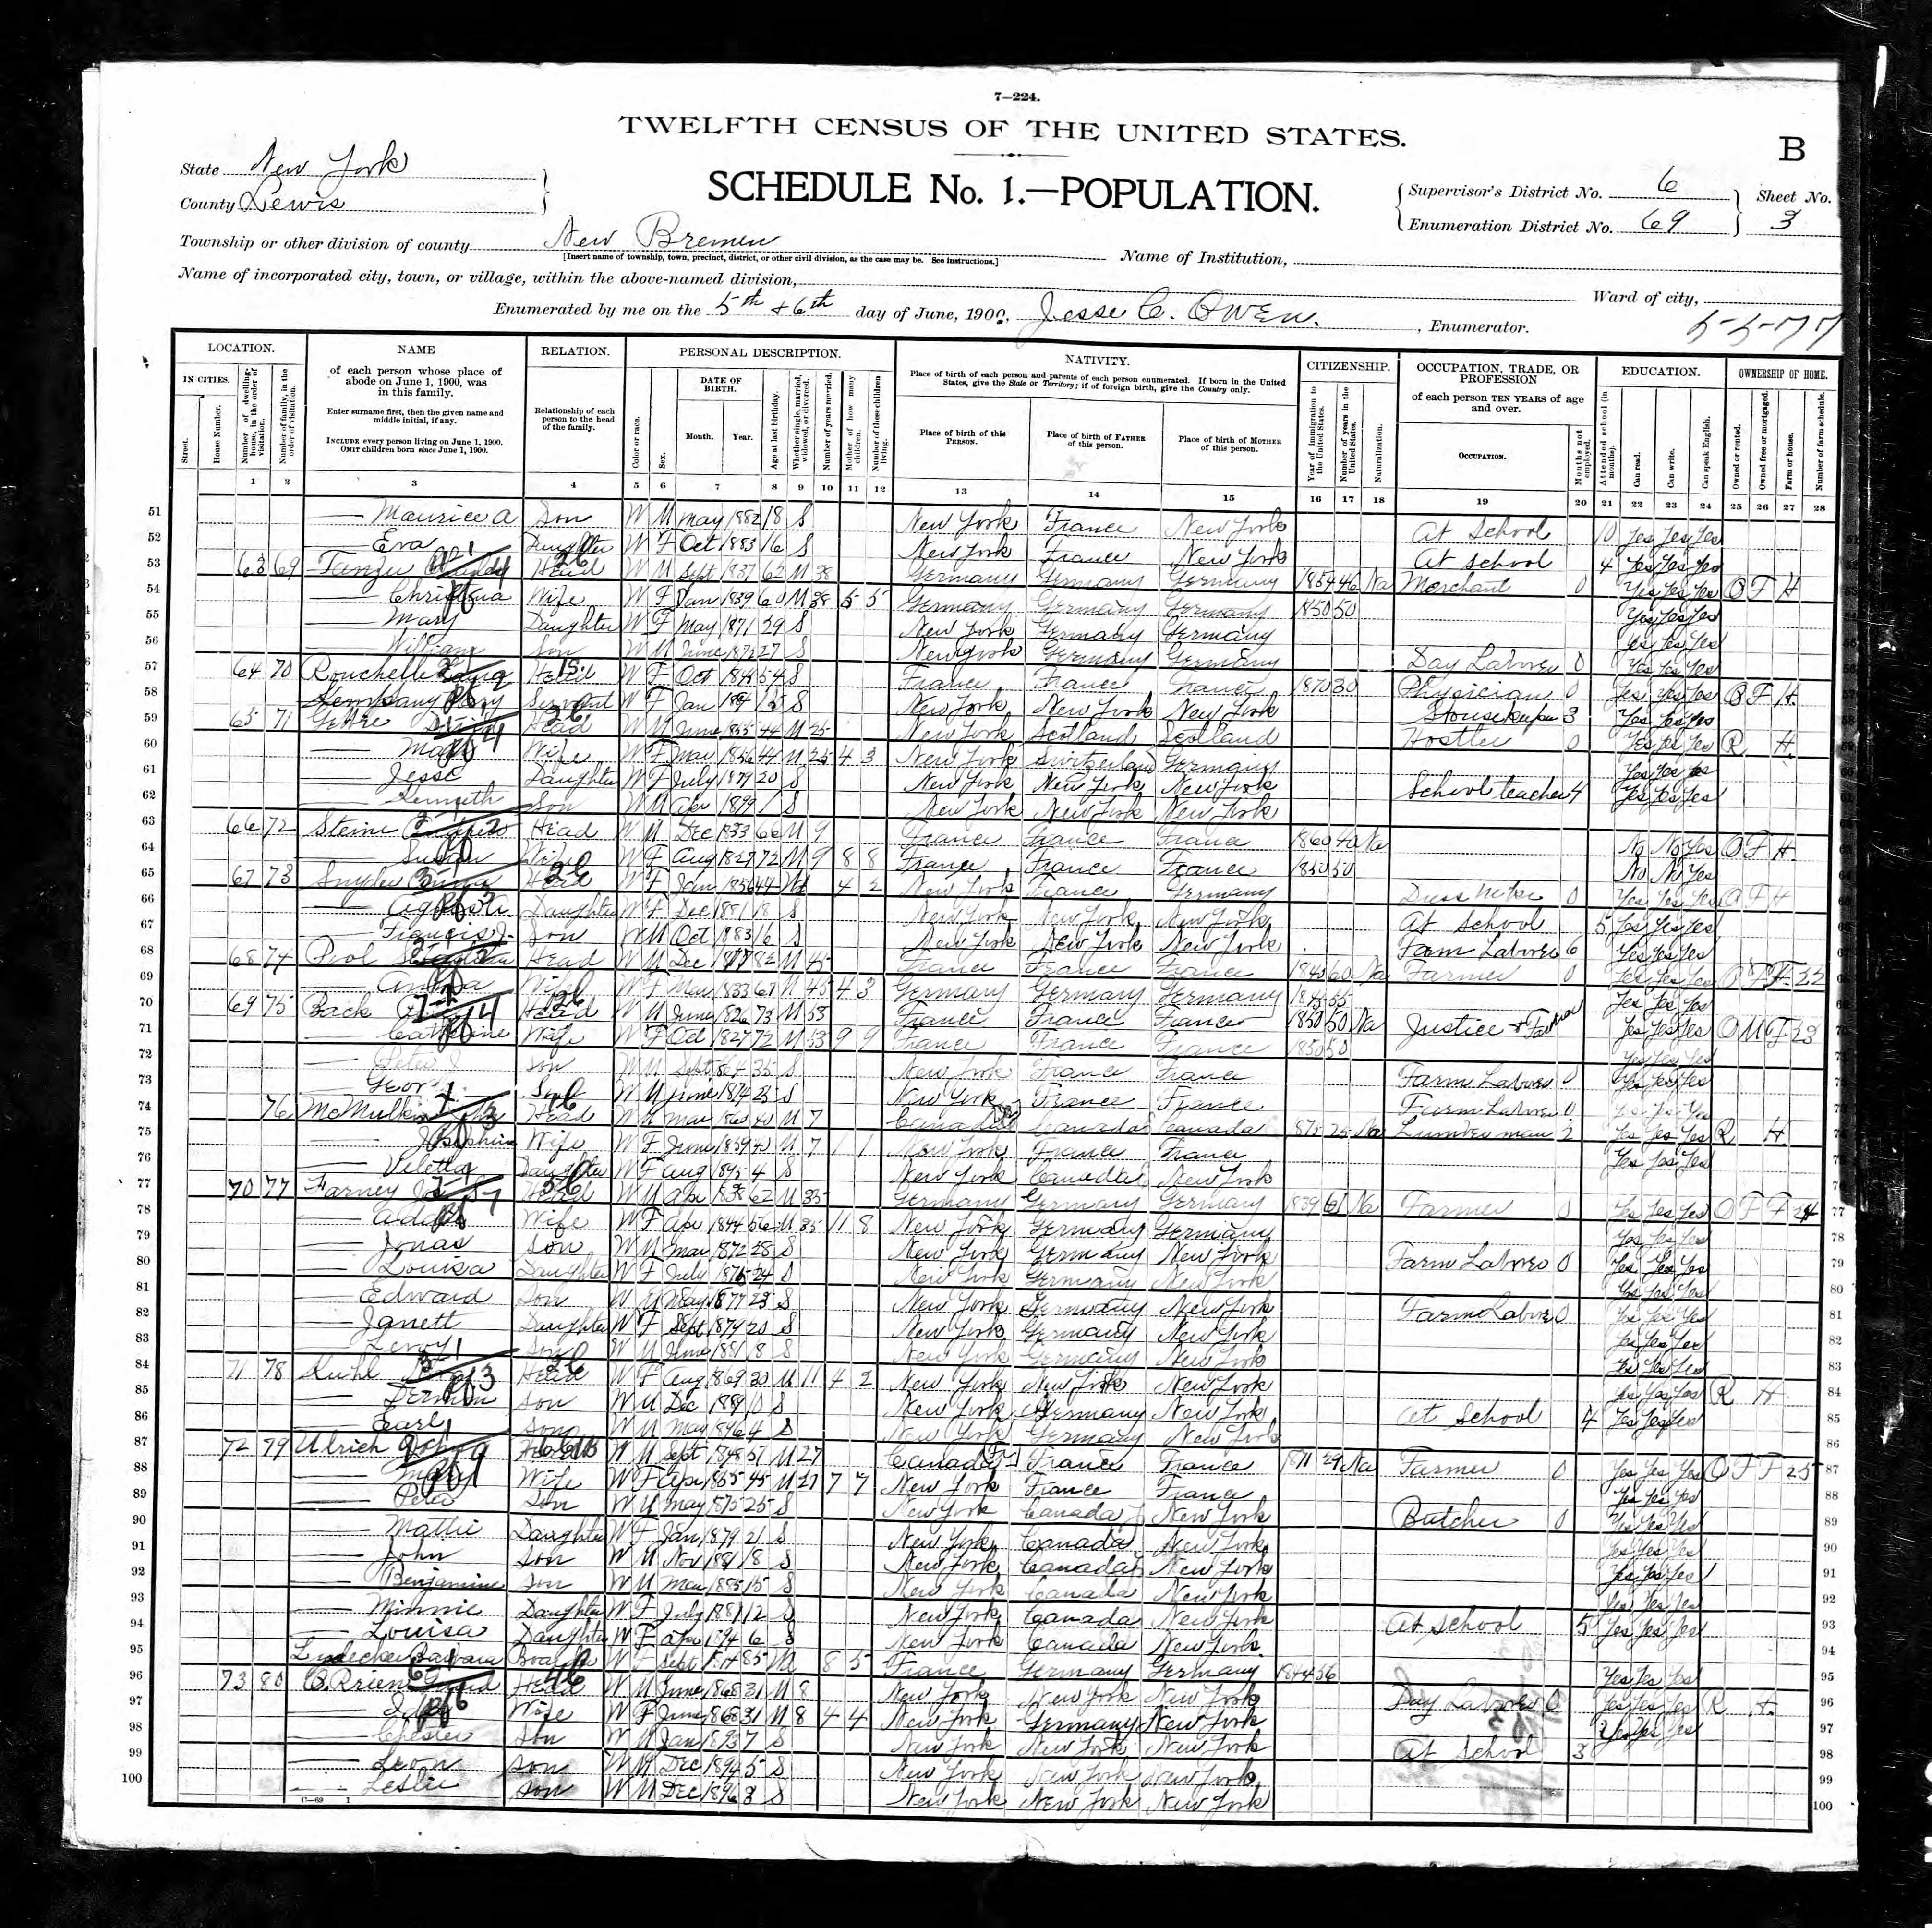 7—224.
TWELFTH CENSUS OF THE UNITED STATES.
B
State New York
SCHEDULE No. 1.—POPULATION.
County Lewis
Supervisor's District No. 6
Sheet No.
Enumeration District No. 69
3
Township or other division of county New Bremen
[Insert name of township, town, precinct, district, or other civil division, as the case may be. See instructions.]
Name of Institution,
Name of incorporated city, town, or village, within the above-named division,
Ward of city,
Enumerated by me on the 5th + 6th day of June, 1900, Jesse C. Owen. , Enumerator.
LOCATION. NAME RELATION. PERSONAL DESCRIPTION. NATIVITY. CITIZENSHIP. OCCUPATION, TRADE, OR PROFESSION EDUCATION. OWNERSHIP OF HOME.
IN CITIES. Street. House Number. Number of dwelling-house, in the order of visitation. Number of family, in the order of visitation.
of each person whose place of abode on June 1, 1900, was in this family.
Enter surname first, then the given name and middle initial, if any.
INCLUDE every person living on June 1, 1900.
OMIT children born since June 1, 1900.
Relationship of each person to the head of the family.
Color or race. Sex. DATE OF BIRTH. Month. Year. Age at last birthday. Whether single, married, widowed, or divorced. Number of years married. Mother of how many children. Number of these children living.
Place of birth of each person and parents of each person enumerated. If born in the United States, give the State or Territory; if of foreign birth, give the Country only.
Place of birth of this PERSON. Place of birth of FATHER of this person. Place of birth of MOTHER of this person.
Year of immigration to the United States. Number of years in the United States. Naturalization.
of each person TEN YEARS of age and over.
OCCUPATION. Months not employed.
Attended school (in months). Can read. Can write. Can speak English.
Owned or rented. Owned free or mortgaged. Farm or house. Number of farm schedule.
1 2 3 4 5 6 7 8 9 10 11 12 13 14 15 16 17 18 19 20 21 22 23 24 25 26 27 28
51 Maurice A Son W M May 1882 18 S New York France New York At School 10 Yes Yes Yes
52 Eva Daughter W F Oct 1883 16 S New York France New York At School 4 Yes Yes Yes
53 63 69 Head W M Sept 1837 62 M 38 Germany Germany Germany 1854 46 Na Merchant 0 Yes Yes Yes O F H
54 Christina Wife W F Jan 1839 60 M 38 5 5 Germany Germany Germany 1850 50 Yes Yes Yes
55 Mary Daughter W F May 1871 29 S New York Germany Germany Yes Yes Yes
56 William Son W M June 1872 27 S New York Germany Germany Day Laborer 0 Yes Yes Yes
57 64 70 Rouchelle Head W F Oct 1845 54 S France France France 1870 30 Physician 0 Yes Yes Yes O F H
58 Servant W F Jan 15 S New York New York New York Housekeeper 3 Yes Yes Yes
59 65 71 Head W M June 1855 44 M 25 New York Scotland Scotland Hostler 0 Yes Yes Yes R H
60 Mary Wife W F Mar 1856 44 M 25 4 3 New York Switzerland Germany Yes Yes Yes
61 Jesse Daughter W F July 1879 20 S New York New York New York School teacher 4 Yes Yes Yes
62 Kenneth Son W M Apr 1899 1 S New York New York New York
63 66 72 Head W M Dec 1833 66 M 9 France France France 1860 40 Na No No Yes O F H
64 Susan Wife W F Aug 1827 72 M 9 8 8 France France France 1850 50 No No Yes
65 67 73 Snyder Head W F Jan 1856 44 4 2 New York France Germany Dress Maker 0 Yes Yes Yes O F H
66 Daughter W F Dec 1881 18 S New York New York New York At School 5 Yes Yes Yes
67 Francis J. Son W M Oct 1883 16 S New York New York New York Farm Laborer 6 Yes Yes Yes
68 68 74 Pool Head W M Dec 1817 82 M 45 France France France 1840 60 Na Farmer 0 Yes Yes Yes O F
69 Wife W F Mar 1833 67 M 45 4 3 Germany Germany Germany 1845 55 Yes Yes Yes
70 69 75 Back Head W M June 1826 73 M 53 France France France 1850 50 Na Justice + Farmer Yes Yes Yes O M F 23
71 Catherine Wife W F Oct 1827 72 M 53 9 9 France France France 1850 50 Yes Yes Yes
72 Peter J Son W M Sept 1864 35 S New York France France Farm Laborer 0 Yes Yes Yes
73 Son W M June 1874 25 S New York France France Farm Laborer 0 Yes Yes Yes
74 76 McMullen Head W M Mar 1860 40 M 7 Canada Canada Canada 1875 25 Na Lumber man 2 Yes Yes Yes R H
75 Josephine Wife W F June 1859 40 M 7 1 1 New York France France Yes Yes Yes
76 Viletta Daughter W F Aug 1895 4 S New York Canada New York
77 70 77 Farney Head W M Apr 1838 62 M 35 Germany Germany Germany 1839 61 Na Farmer 0 Yes Yes Yes O F F 24
78 Wife W F Apr 1844 56 M 35 11 8 New York Germany Germany Yes Yes Yes
79 Jonas Son W M Mar 1872 28 S New York Germany New York Farm Laborer 0 Yes Yes Yes
80 Louisa Daughter W F July 1875 24 S New York Germany New York Yes Yes Yes
81 Edward Son W M May 1877 23 S New York Germany New York Farm Laborer 0 Yes Yes Yes
82 Janett Daughter W F Sept 1879 20 S New York Germany New York Yes Yes Yes
83 Leroy Son W M June 1881 18 S New York Germany New York Yes Yes Yes
84 71 78 Kuhl Head W F Aug 1869 30 M 11 4 2 New York New York New York Yes Yes Yes R H
85 Son W M Dec 1889 10 S New York Germany New York At School 4 Yes Yes Yes
86 Earl Son W M May 1896 4 S New York Germany New York
87 72 79 Ulrich John Head W M Sept 1848 51 M 27 Canada Fr France France 1871 29 Na Farmer 0 Yes Yes Yes O F F 25
88 Mary Wife W F Apr 1855 45 M 27 7 7 New York France France Yes Yes Yes
89 Peter Son W M May 1875 25 S New York Canada New York Butcher 0 Yes Yes Yes
90 Mattie Daughter W F Jan 1879 21 S New York Canada New York Yes Yes Yes
91 John Son W M Nov 1881 18 S New York Canada New York Yes Yes Yes
92 Benjamin Son W M Mar 1885 15 S New York Canada New York Yes Yes Yes
93 Minnie Daughter W F July 1887 12 S New York Canada New York At School 5 Yes Yes Yes
94 Louisa Daughter W F Apr 1894 6 S New York Canada New York
95 Lydecker Barbara Boarder W F Sept 1814 85 8 5 France Germany Germany 1844 56 Yes Yes Yes
96 73 80 Head W M June 1868 31 M 8 New York New York New York Day Laborer 0 Yes Yes Yes R H
97 Wife W F June 1868 31 M 8 4 4 New York Germany New York Yes Yes Yes
98 Chester Son W M Jan 1893 7 S New York New York New York At School 3
99 Leon Son W M Dec 1894 5 S New York New York New York
100 Leslie Son W M Dec 1896 3 S New York New York New York
C—69 1